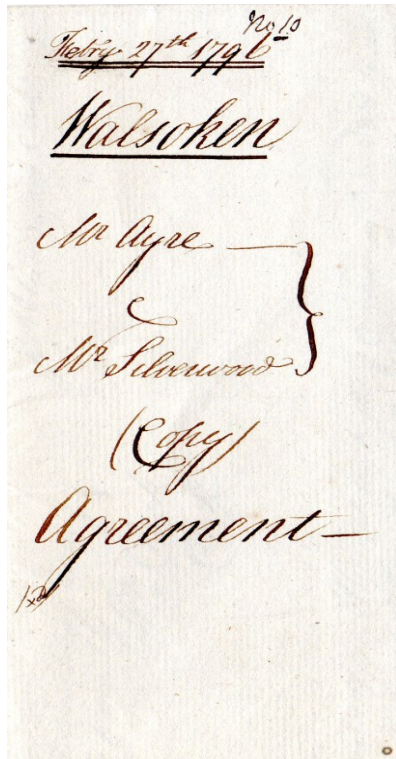 No 10
Feby. 27th 1796
Walsoken
Mr Ayre —
&
Mr Silverwood
(Copy)
Agreement —